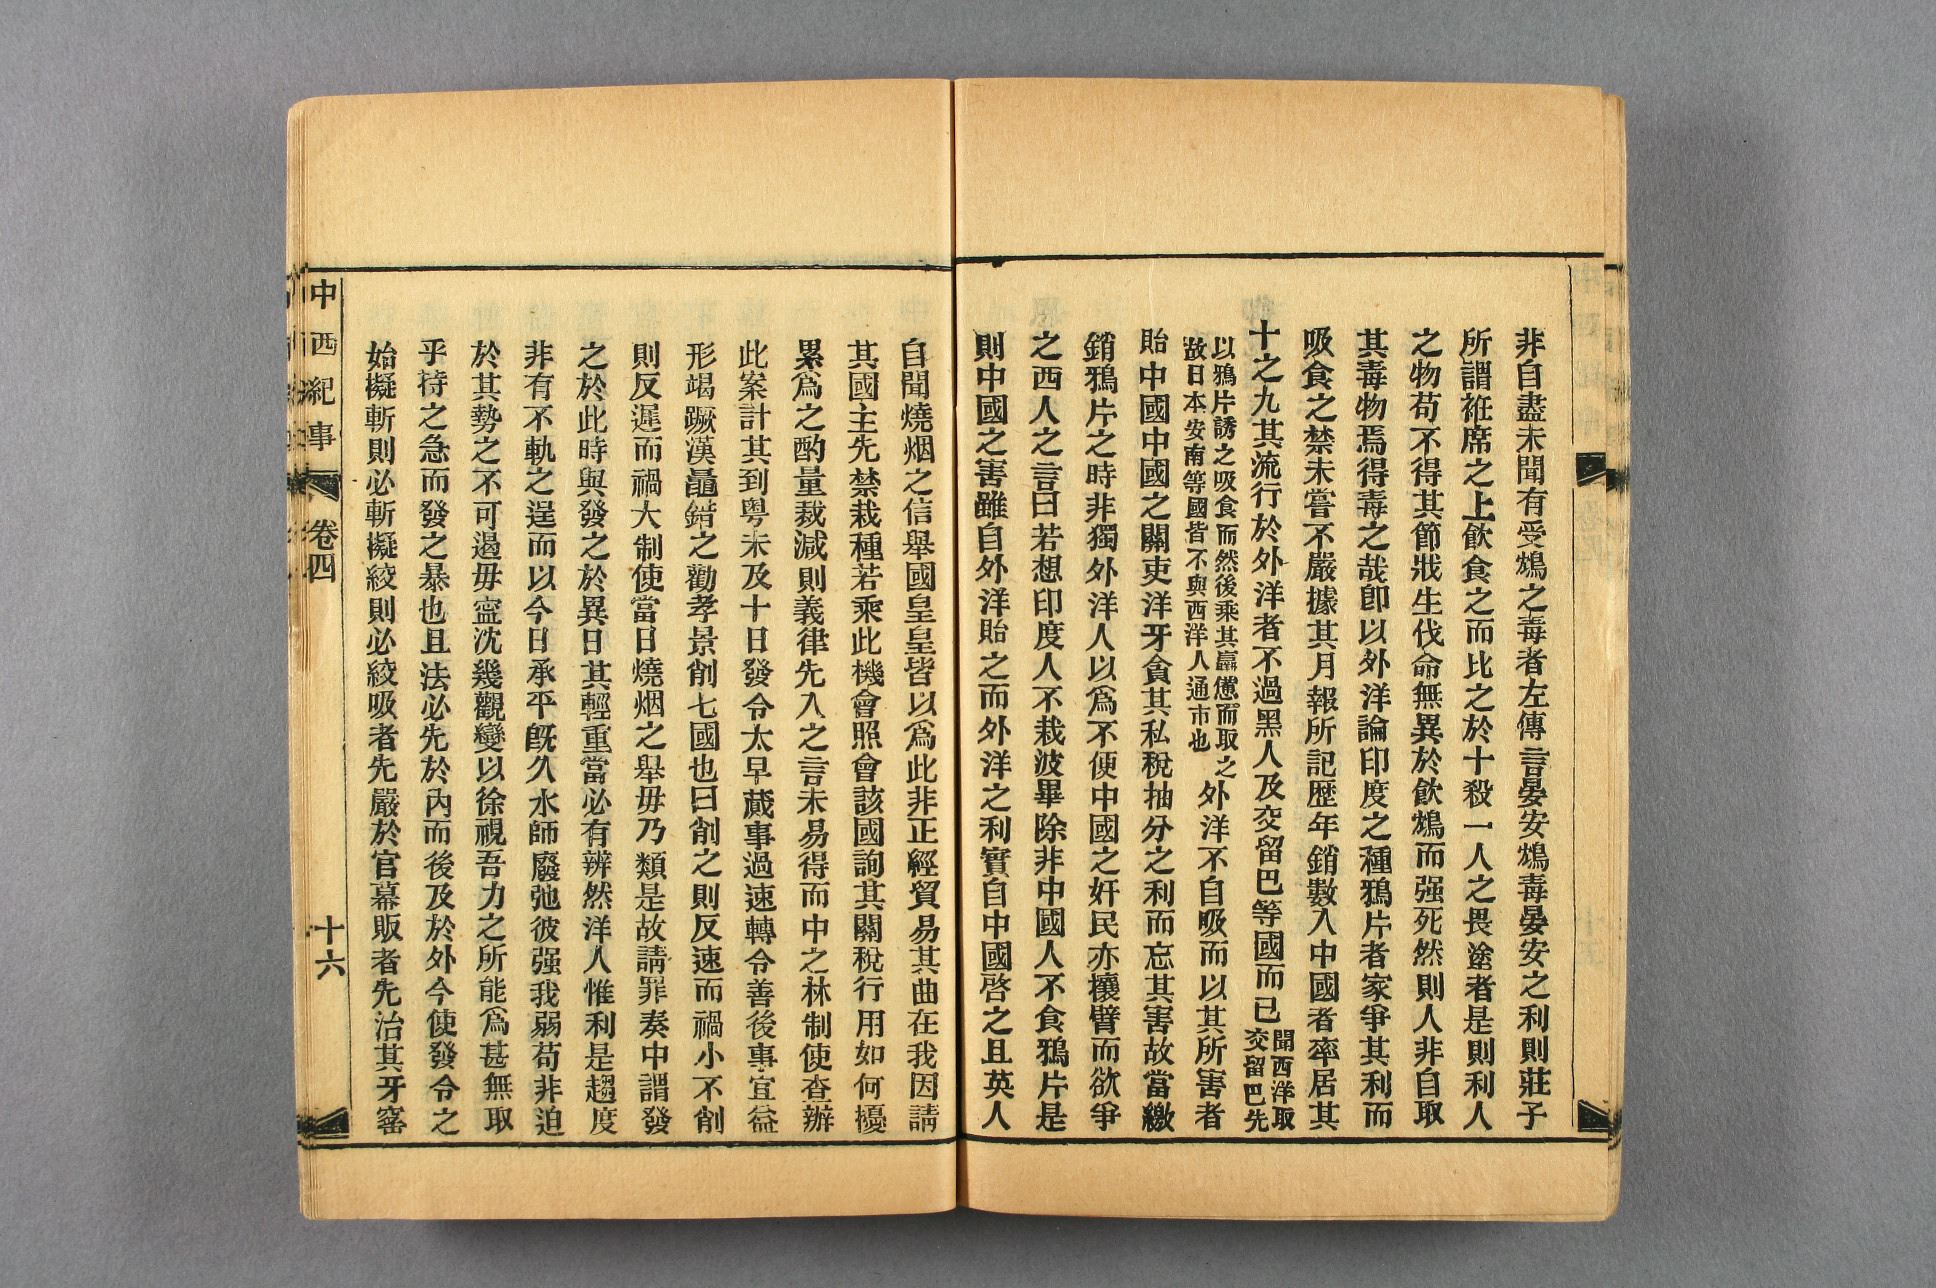 非自盡未聞有受鴆之毒者左傳言晏安鴆毒晏安之利則莊子
所謂袵席之上飲食之而比之於十殺一人之畏塗者是則利人
之物苟不得其節戕生伐命無異於飲鴆而强死然則人非自取
其毒物焉得毒之哉卽以外洋論印度之種鴉片者家爭其利而
吸食之禁未嘗不嚴據其月報所記歴年銷數入中國者率居其
十之九其流行於外洋者不過黑人及交留巴等國而已聞西洋取
交留巴先
以鴉片誘之吸食而然後乘其羸憊而取之
故日本安南等國皆不與西洋人通市也外洋不自吸而以其所害者
貽中國中國之關吏洋牙貪其私稅抽分之利而忘其害故當繳
銷鴉片之時非獨外洋人以爲不便中國之奸民亦攘臂而欲爭
之西人之言曰若想印度人不栽波畢除非中國人不食鴉片是
則中國之害雖自外洋貽之而外洋之利實自中國啓之且英人
自聞燒烟之信舉國皇皇皆以爲此非正經貿易其曲在我因請
其國主先禁栽種若乘此機會照會該國詢其關稅行用如何擾
累爲之酌量裁減則義律先入之言未易得而中之林制使查辦
此案計其到粤未及十日發令太早蕆事過速轉令善後事宜益
形竭蹶漢鼂錯之勸孝景削七國也曰削之則反速而禍小不削
則反遲而禍大制使當日燒烟之舉毋乃類是故請罪奏中謂發
之於此時與發之於異日其輕重當必有辨然洋人惟利是趨度
非有不軌之逞而以今日承平旣久水師廢弛彼强我弱苟非迫
於其勢之不可遏毋寍沈幾觀變以徐視吾力之所能爲甚無取
乎待之急而發之暴也且法必先於內而後及於外今使發令之
始擬斬則必斬擬絞則必絞吸者先嚴於官幕販者先治其牙窰
中西紀事
卷四
十六